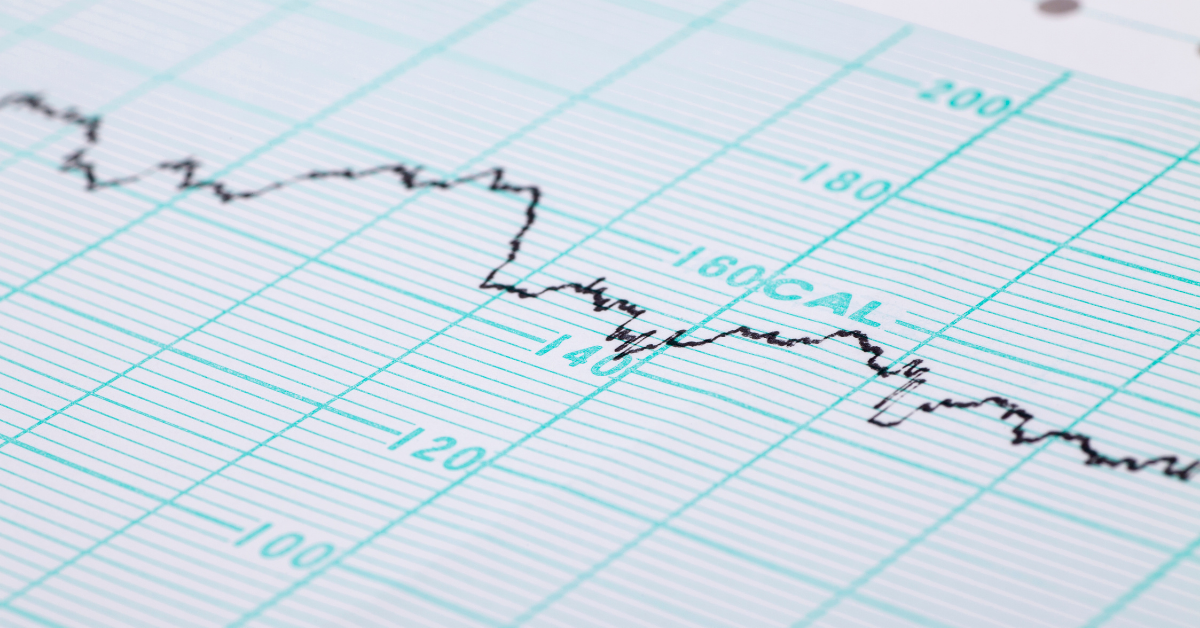 200
180
160
CAL
140
120
100